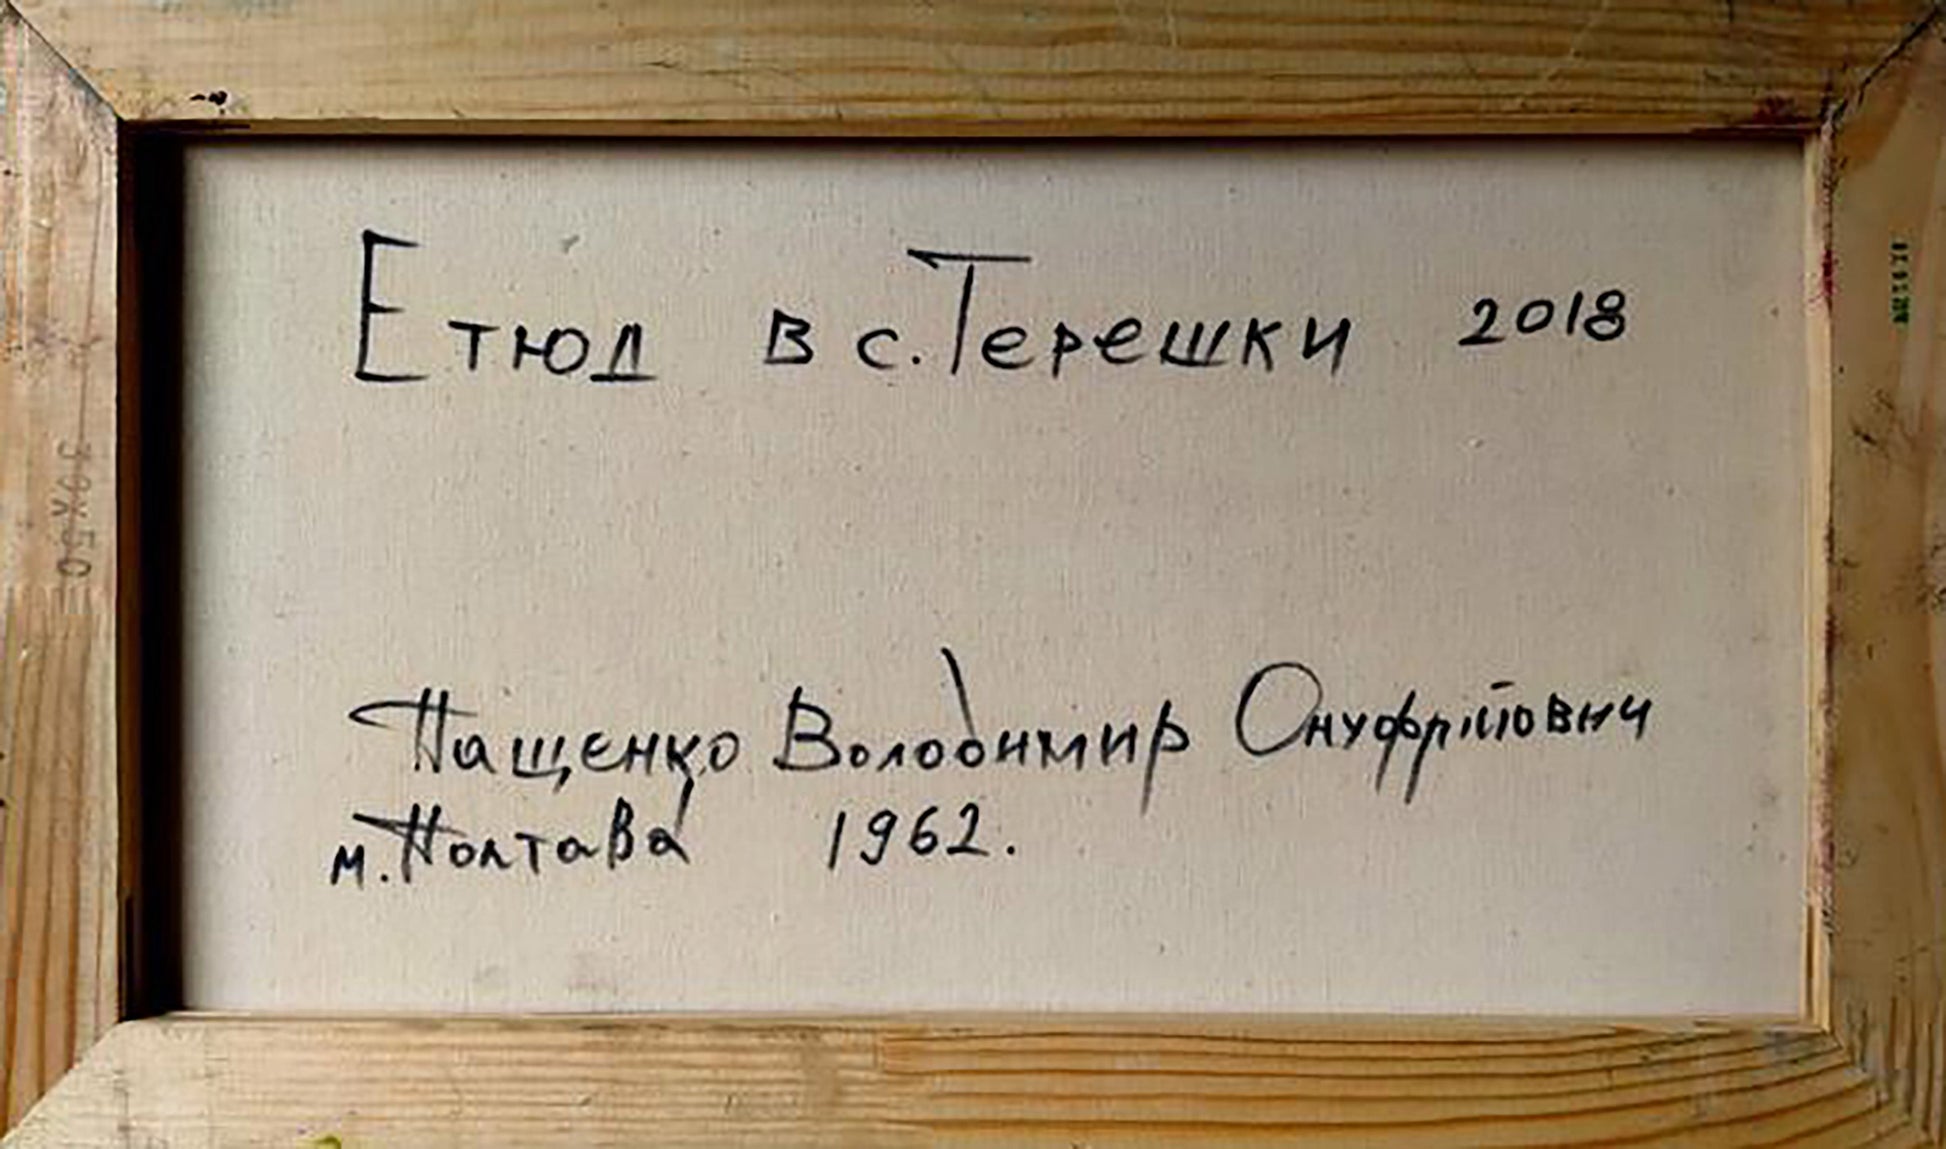 Етюд в с. Терешки 2018
Пащенко Володимир Онуфрійович
м. Полтава 1962.